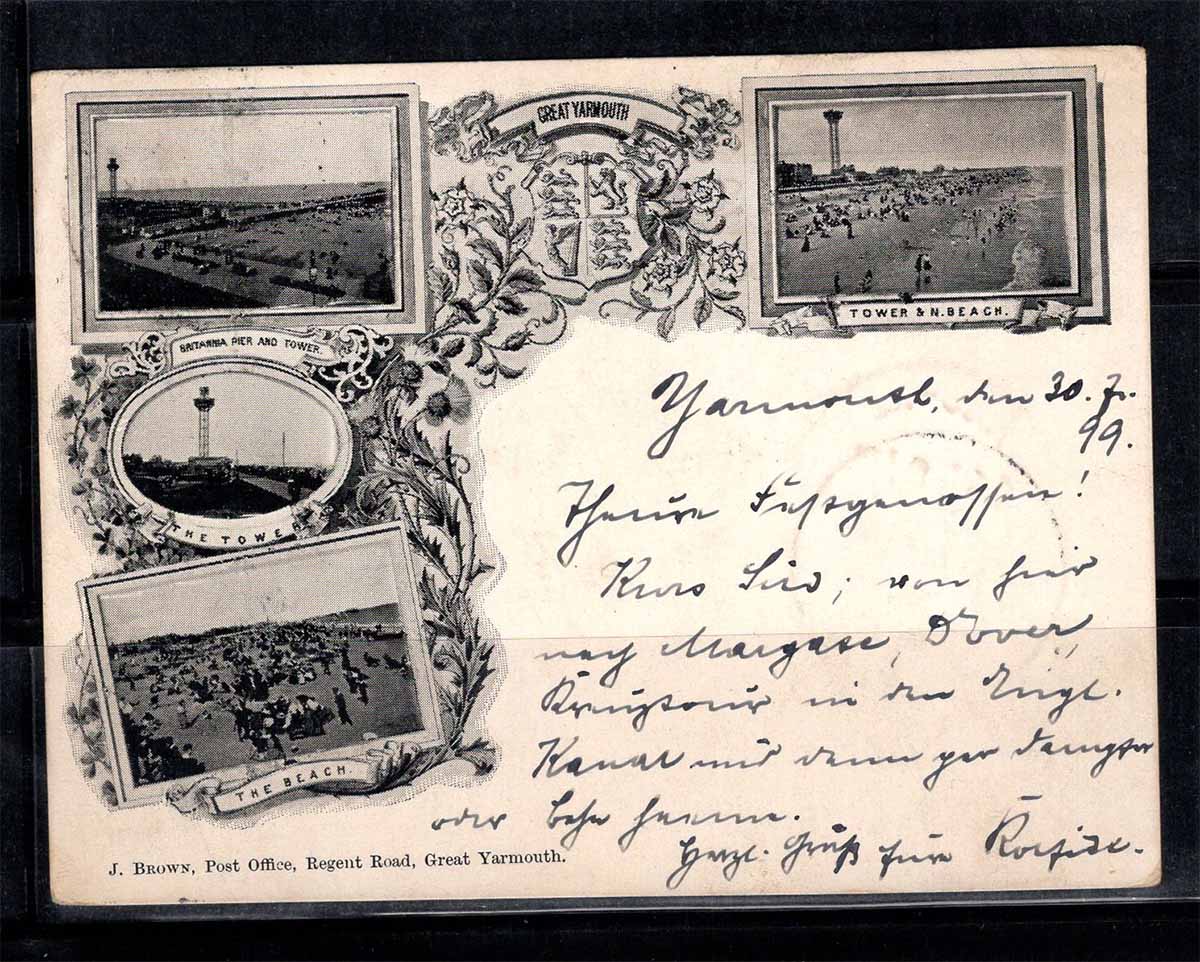 GREAT YARMOUTH
TOWER & N. BEACH.
BRITANNIA PIER AND TOWER.
THE TOWE
THE BEACH.
Yarmouth, den 30. 7.
99.
Theure Festgenossen!
Kurs Süd; von hier
nach Margate, Dover,
Kreuztour in den Engl.
Kanal und dann per Dampfer
oder Bahn heim.
Herzl. Gruß
J. BROWN, Post Office, Regent Road, Great Yarmouth.